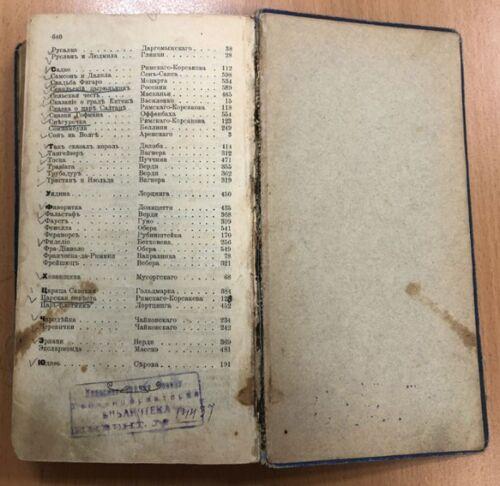 640
Русалка Даргомыжскаго 38
Русланъ и Людмила Глинки 28
Садко Римскаго-Корсакова 112
Самсонъ и Далила Сенъ-Санса 598
Свадьба Фигаро Моцарта 534
Севильскій цырюльникъ Россини 589
Сельская честь Масканьи 465
Сказаніе о градѣ Китежѣ Василенко 15
Сказка о царѣ Салтанѣ Римскаго-Корсакова 118
Сказки Гофмана Оффенбаха 554
Снѣгурочка Римскаго-Корсакова 123
Сомнамбула Беллини 249
Сонъ на Волгѣ Аренскаго 3
Такъ сказалъ король Делиба 414
Тангейзеръ Вагнера 312
Тоска Пуччини 471
Травіата Верди 355
Трубадуръ Верди 362
Тристанъ и Изольда Вагнера 319
Ундина Лорцинга 450
Фаворитка Доницетти 435
Фальстафъ Верди 368
Фаустъ Гуно 399
Фенелла Обера 541
Фераморсъ Рубинштейна 170
Фиделіо Бетховена 256
Фра-Діаволо Обера 549
Франческа-да-Римини Направника 78
Фрейшицъ Вебера 321
Хованщина Мусоргскаго 68
Царица Савская Гольдмарка 384
Царская невѣста Римскаго-Корсакова 128
Царь-плотникъ Лортцинга 452
Чародѣйка Чайковскаго 234
Черевички Чайковскаго 242
Эрнани Верди 369
Эсклармонда Массне 481
Юдиѳь Сѣрова 191
БИБЛІОТЕКА